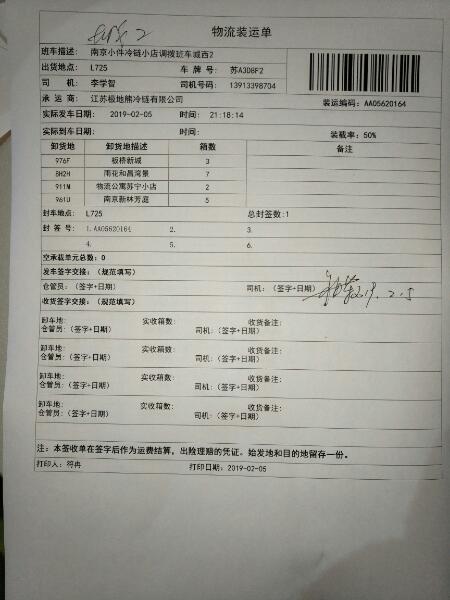 物流装运单
班车描述: 南京小件冷链小店调拨班车城西2
出货地点: L725 车 牌 号: 苏A3D8F2
司 机: 李学智 司机号码: 13913398704
承 运 商: 江苏极地熊冷链有限公司 装运编码: AA05620164
实际发车日期: 2019-02-05 时间: 21:18:14
实际到车日期: 时间: 装载率: 50%
卸货地 卸货地描述 箱数 备注
976F 板桥新城 3
8H2H 雨花和昌湾景 7
911M 物流公寓苏宁小店 2
961U 南京新林芳庭 5
封车地点: L725 总封签数:1
封 签 号: 1.AA05620164 2. 3.
4. 5. 6.
空承载单元总数: 0
发车签字交接: (规范填写)
仓管员: (签字+日期) 司机: (签字+日期) 2019.2.5
收货签字交接: (规范填写)
卸车地: 实收箱数: 收货备注:
仓管员: (签字+日期) 司机: (签字+日期)
卸车地: 实收箱数: 收货备注:
仓管员: (签字+日期) 司机: (签字+日期)
卸车地: 实收箱数: 收货备注:
仓管员: (签字+日期) 司机: (签字+日期)
卸车地: 实收箱数: 收货备注:
仓管员: (签字+日期) 司机: (签字+日期)
注: 本签收单在签字后作为运费结算, 出险理赔的凭证。始发地和目的地留存一份。
打印人: 符冉 打印日期: 2019-02-05